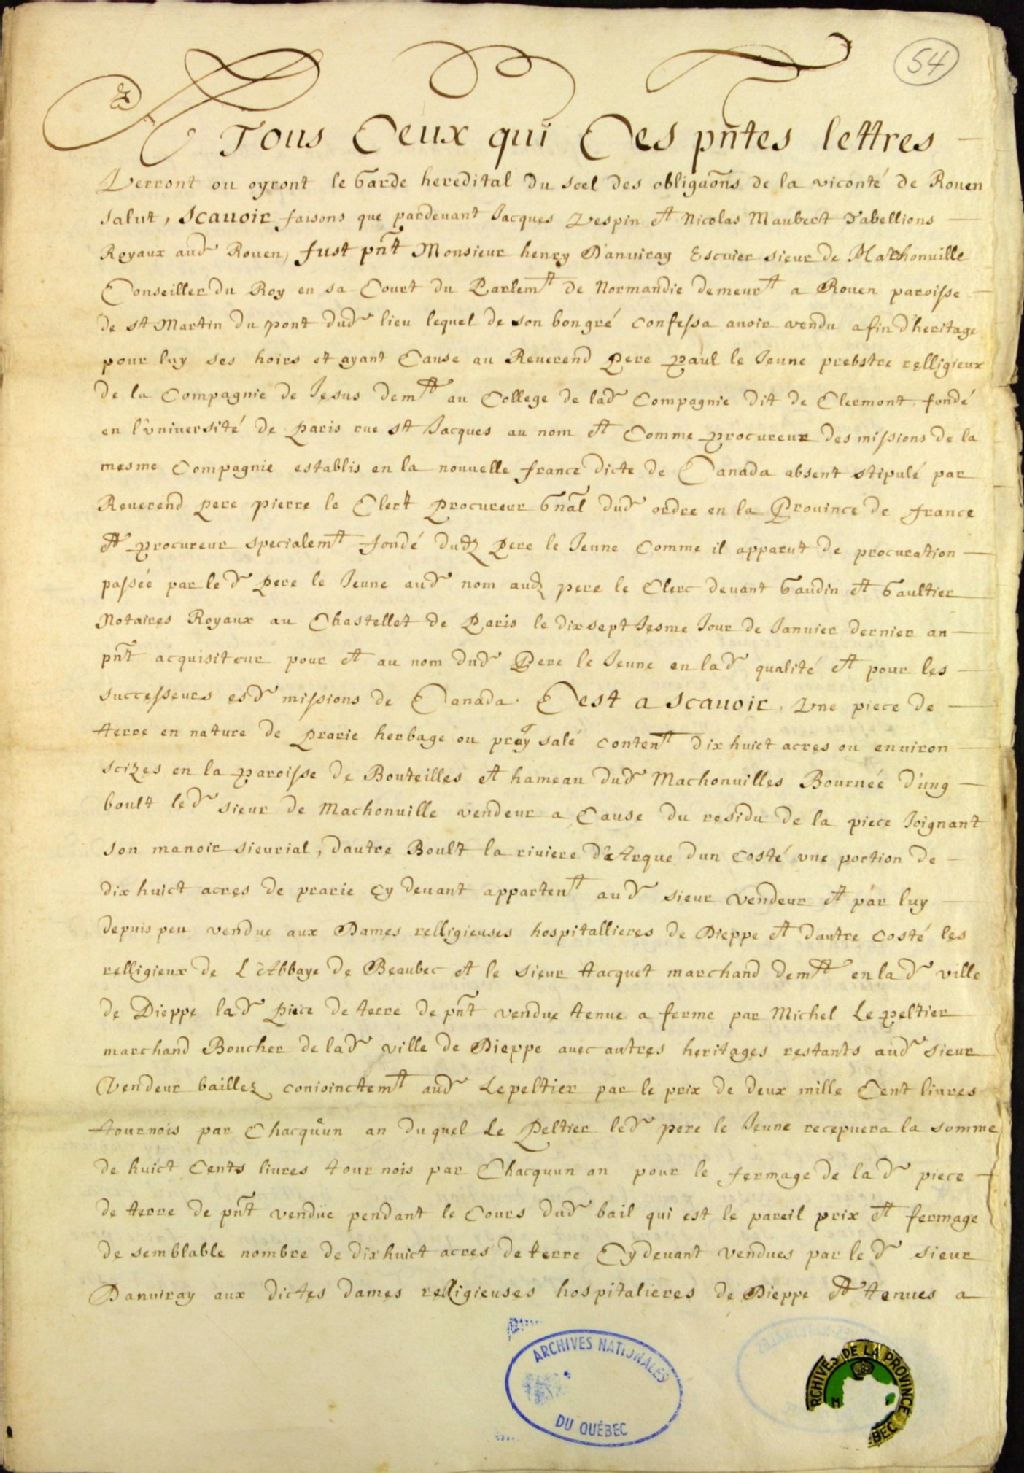 54
A Tous Ceux qui Ces pñtes lettres
Verront ou oyront le Garde heredital du scel des obligaõns de la viconté de Rouen
salut, scauoir faisons que pardeuant Jacques Vespin et Nicolas Maubert Tabellions
Royaux aud Rouen, fust pñt Monsieur henry Danuiray Escuier sieur de Mathonville
Conseiller du Roy en sa Court du Parlemt de Normandie demeurt a Rouen paroisse
de st Martin du pont dud lieu lequel de son bon gré confessa auoir vendu afin d'heritage
pour luy ses hoirs et ayant Cause au Reuerend Pere Paul le Jeune prebstre relligieux
de la Compagnie de Jesus demt au College de lad Compagnie dit de Clermont fondé
en l'vniuersité de Paris rue st Jacques au nom et Comme procureur des missions de la
mesme Compagnie establis en la nouuelle france dicte de Canada absent stipulé par
Reuerend pere pierre le Clerk Procureur Gñal dud ordre en la Prouince de france
et procureur specialemt fondé dud Pere le Jeune Comme il apparut de procuration
passée par le d Pere le Jeune aud nom aud pere le Clerc deuant Gaudin et Gaultier
Notaires Royaux au Chastellet de Paris le dixseptiesme Jour de Januier dernier an
pñt acquisiteur pour et au nom dud Pere le Jeune en lad qualité et pour les
successeurs esd missions de Canada. Cest a scauoir, Vne piece de
terre en nature de prarie herbage ou prey salé content dix huict acres ou enuiron
scizes en la paroisse de Bouteilles et hameau dud Machonuilles Bournée d'ung
boult led sieur de Machonuille vendeur a Cause du residu de la piece Joignant
son manoir sieurial, dautre Boult la riuiere d'Arque dun costé vne portion de
dix huict acres de prarie cy deuant appartent aud sieur vendeur et par luy
depuis peu vendue aux Dames relligieuses hospitallieres de Dieppe et dautre costé les
relligieux de L'Abbaye de Beaubec et le sieur Hacquet marchand demt en la d ville
de Dieppe lad piece de terre de pñt vendue tenue a ferme par Michel Le peltier
marchand Boucher de lad ville de Dieppe auec autres heritages restants aud sieur
Vendeur baillez conioinctemt aud Lepeltier par le prix de deux mille Cent liures
tournois par Chacquun an duquel Le Peltier led pere le Jeune recepuera la somme
de huict Cents liures tournois par Chacquun an pour le fermage de la d piece
de terre de pñt vendue pendant le Cours dud bail qui est le pareil prix et fermage
de semblable nombre de dix huict acres de terre Cy deuant vendues par le d sieur
Danuiray aux dictes dames relligieuses hospitalieres de Dieppe et tenues a
ARCHIVES NATIONALES
DU QUÉBEC
ARCHIVES DE LA PROVINCE
BEC